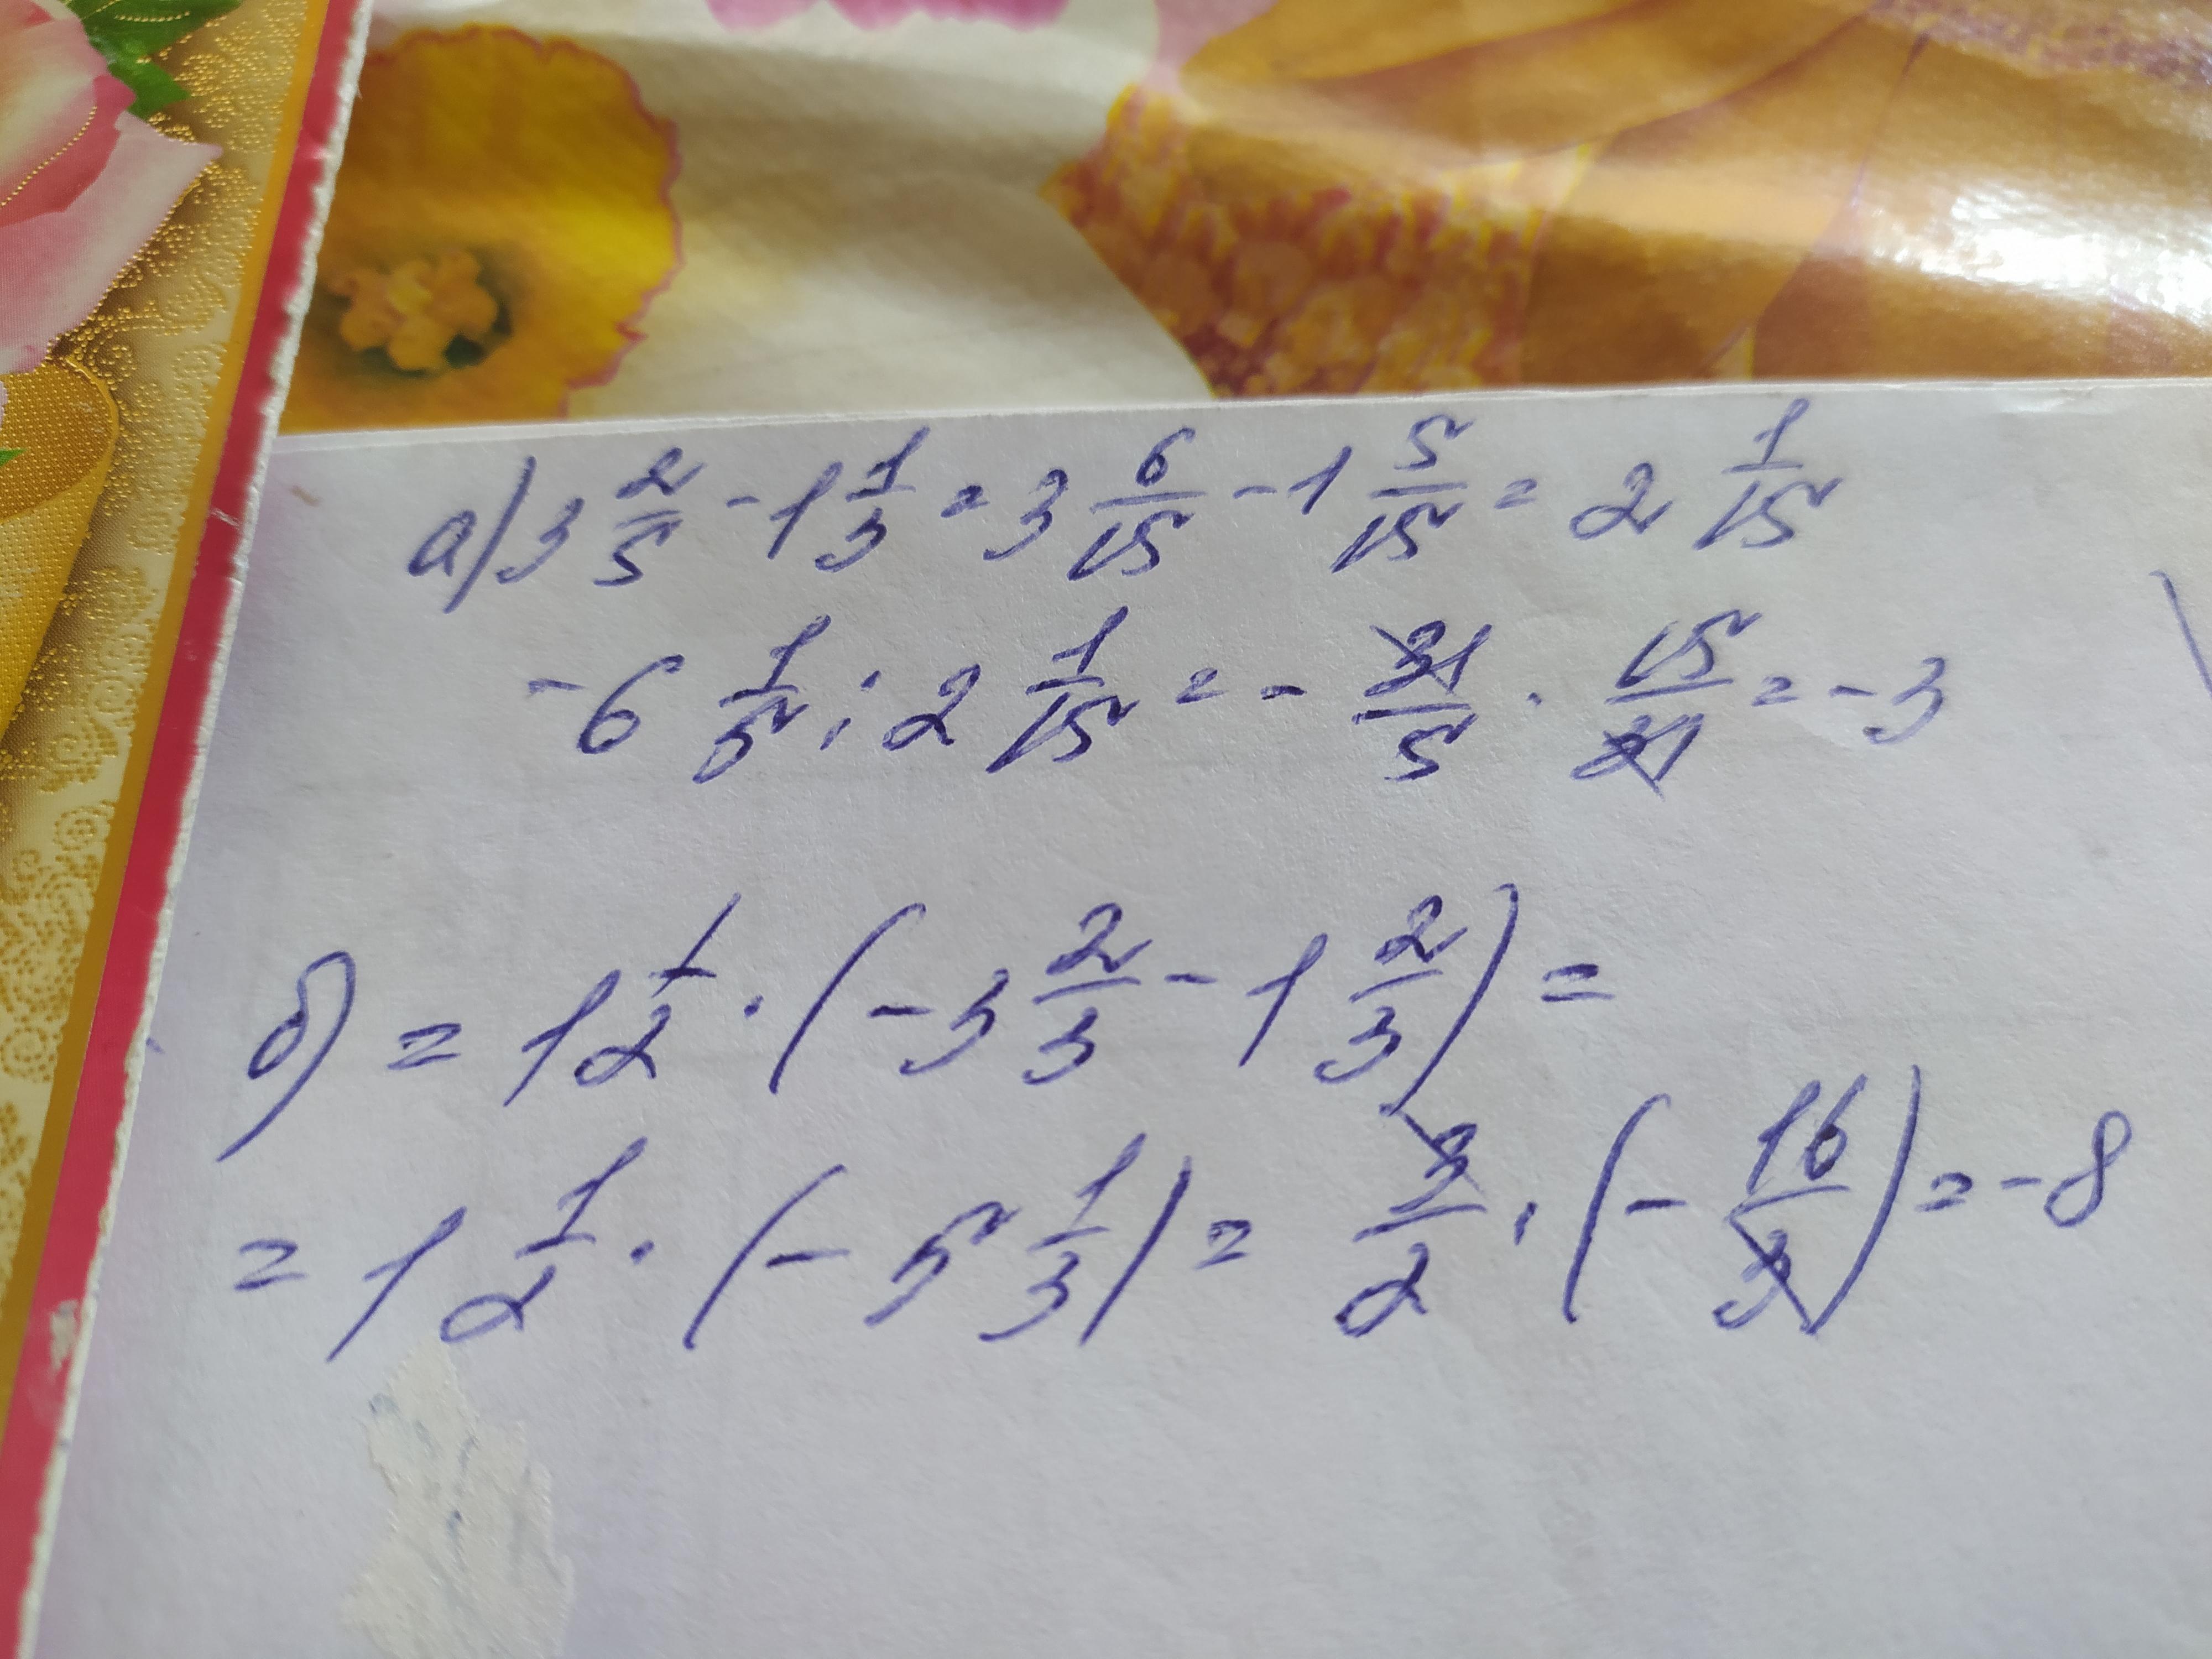 а) 3 2/5 - 1 1/3 = 3 6/15 - 1 5/15 = 2 1/15
- 6 1/5 : 2 1/15 = - 31/5 · 15/31 = - 3
б) = 1 1/2 · (- 3 2/3 - 1 2/3) =
= 1 1/2 · (- 5 1/3) = 3/2 · (- 16/3) = - 8